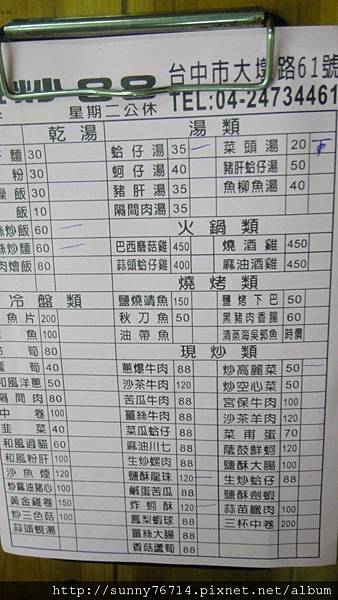 炒 88 台中市大墩路61號
星期二公休 TEL:04-24734461
乾湯
麵 30
粉 30
燥飯 30
飯 10
絲炒飯 60
絲炒麵 60
肉燴飯 80
湯類
蛤仔湯 35 菜頭湯 20
蚵仔湯 40 豬肝蛤仔湯 50
豬肝湯 35 魚柳魚湯 40
隔間肉湯 35
火鍋類
巴西蘑菇雞 450 燒酒雞 450
蒜頭蛤仔雞 400 麻油酒雞 450
燒烤類
鹽燒鯖魚 150 鹽烤下巴 50
秋刀魚 50 黑豬肉香腸 60
油帶魚 清蒸海吳郭魚 時價
冷盤類
魚片 200
魚 100
筍 80
筍 40
和風洋蔥 50
隔間肉 80
中卷 100
韭菜 40
和風過貓 60
和風粉肝 100
沙魚煙 120
炒麻油豬心 100
黃金雞卷 150
炒三色菇 100
蒜頭蜆湯
現炒類
蔥爆牛肉 88 炒高麗菜 50
沙茶牛肉 120 炒空心菜 50
苦瓜牛肉 88 宮保牛肉 100
薑絲牛肉 88 沙茶羊肉 120
菜瓜蛤仔 88 菜甫蛋 70
麻油川七 88 蔭鼓鮮蚵 120
生炒螺肉 88 鹽酥大腸 100
鹽酥龍珠 120 生炒蛤仔 88
鹹蛋苦瓜 88 鹽酥劍蝦
炸蚵酥 120 蒜苗臘肉 100
鳳梨蝦球 88 三杯中卷 200
薑絲大腸 88
香菇蘆筍 88
http://sunny76714.pixnet.net/album